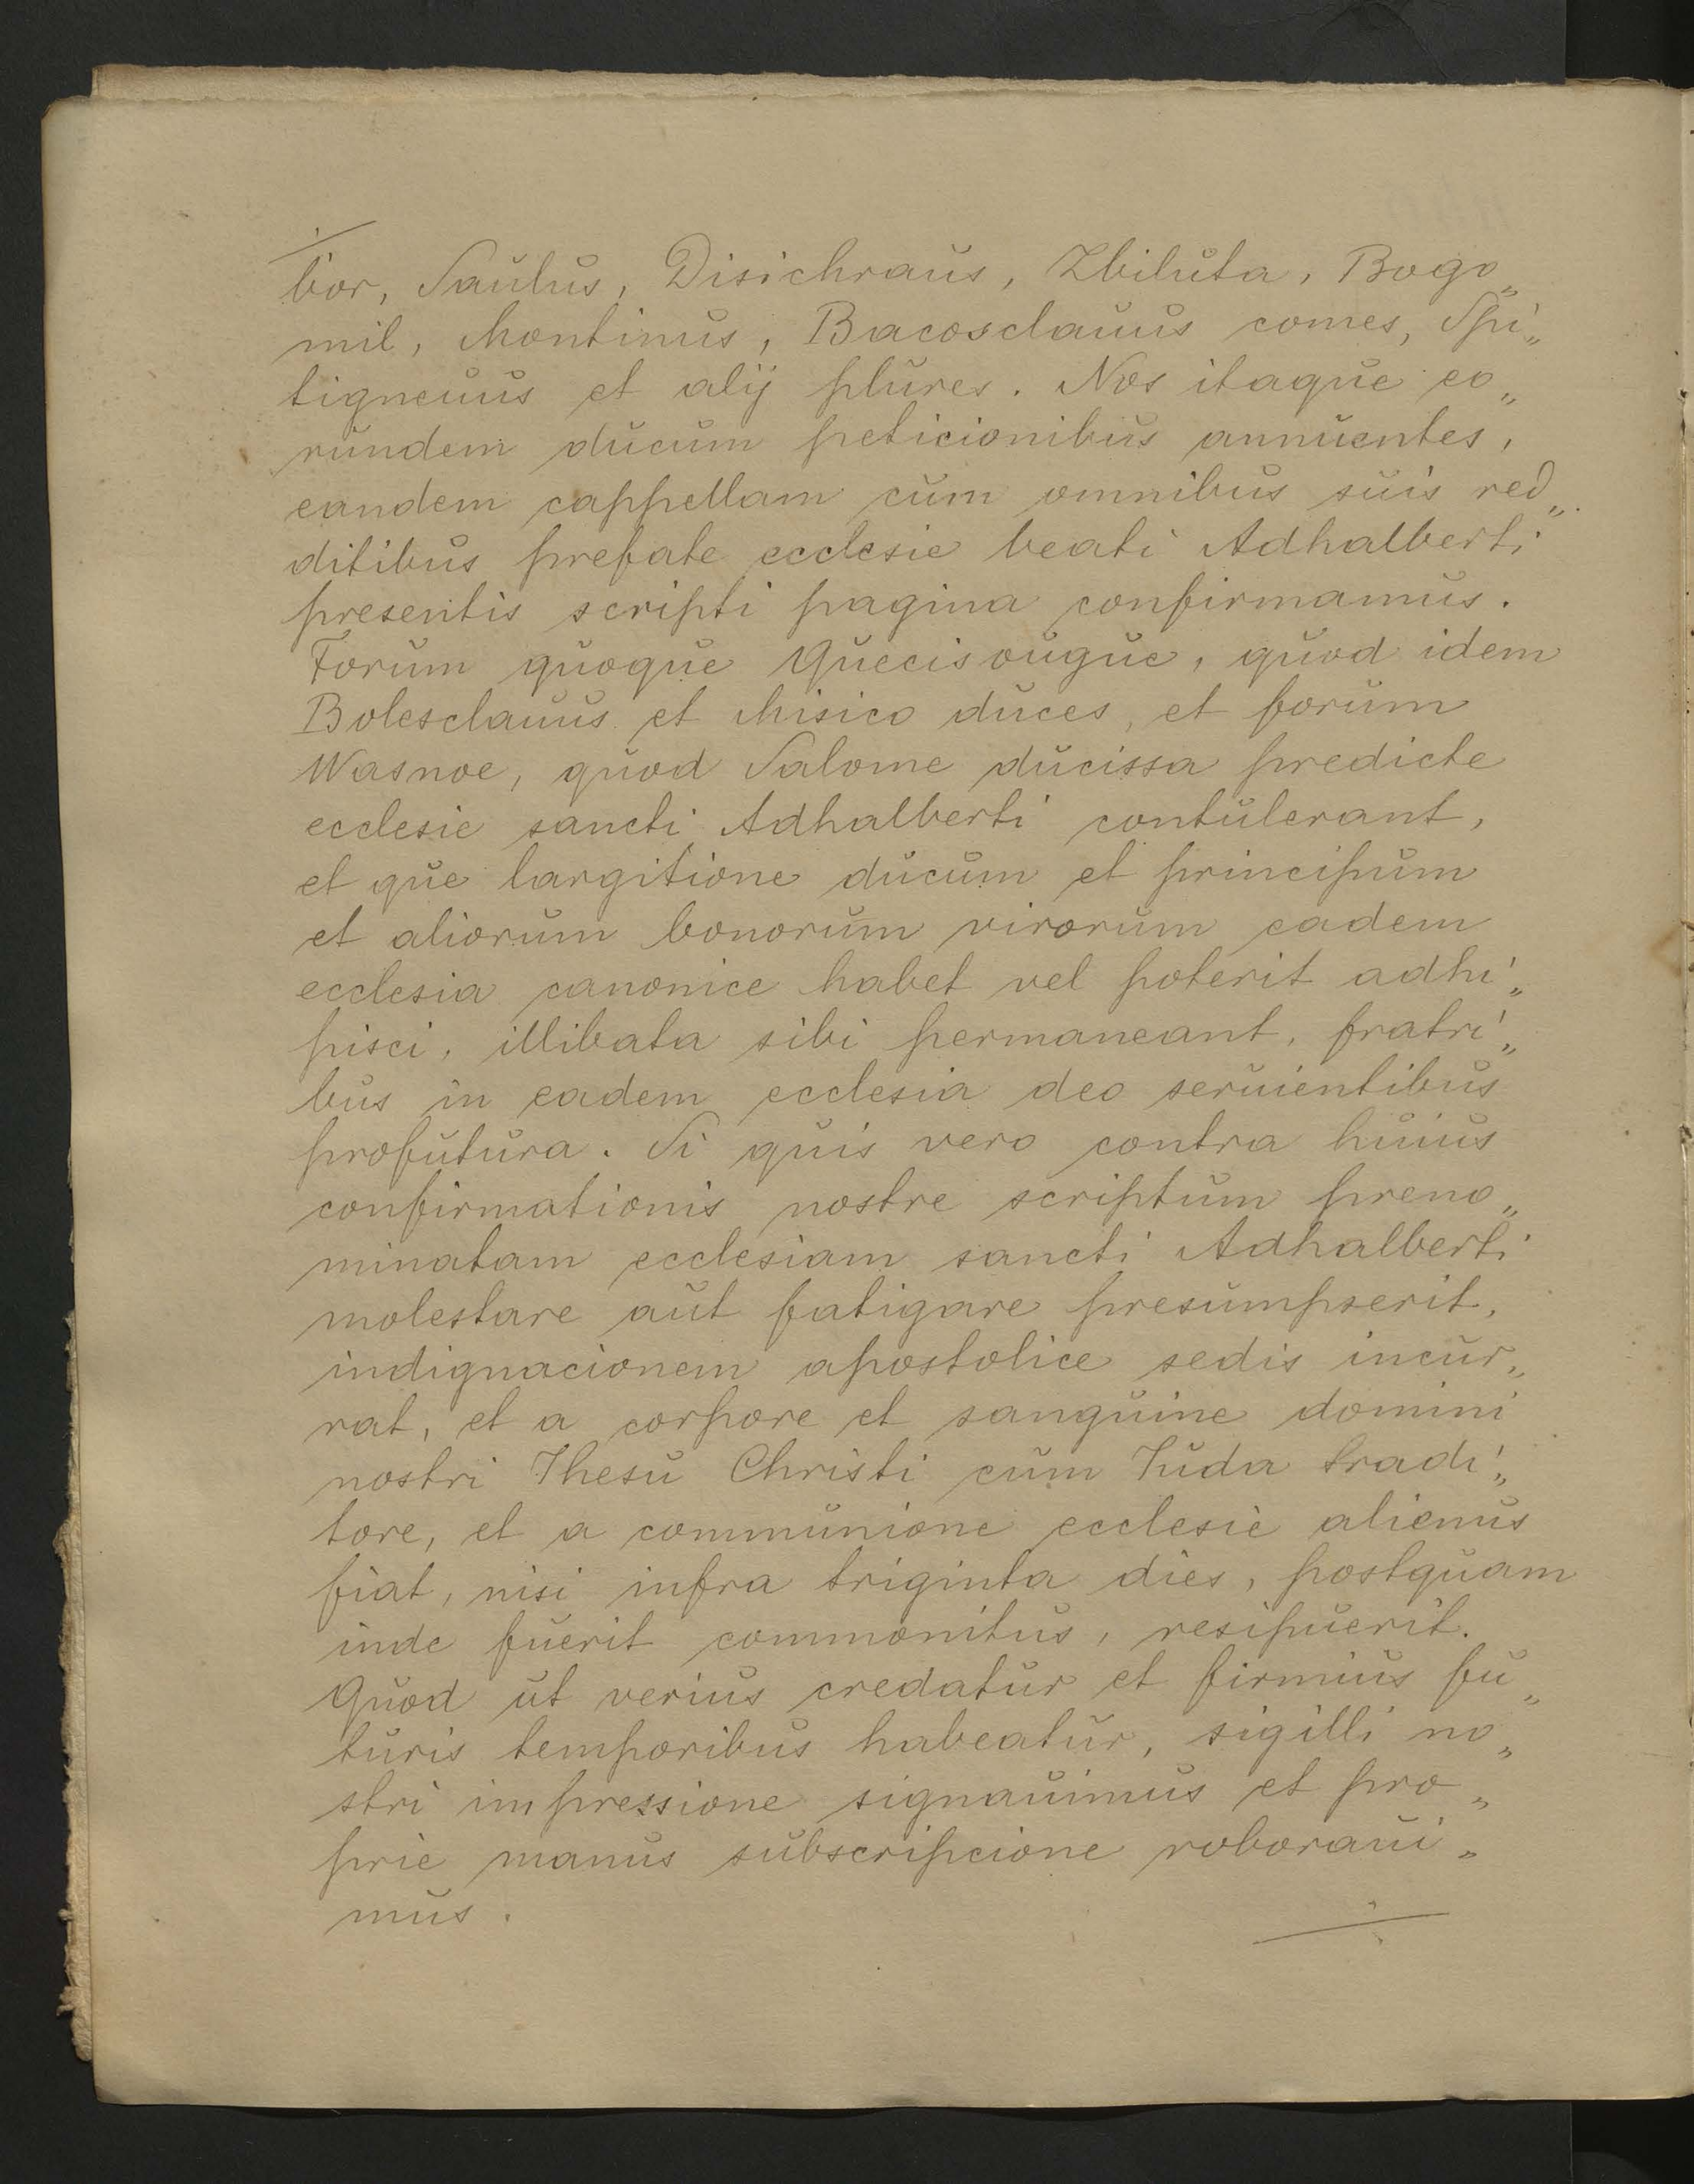 bor, Saulus, Disichraus, Zbiluta, Bogo„
mil, Montinus, Bacosclauus comes, Spi„
tigneuus et alij plures. Nos itaque eo„
rundem ducum peticionibus annuentes,
eandem cappellam cum omnibus suis red„
ditibus prefate ecclesie beati Adhalberti
presentis scripti pagina confirmamus.
Forum quoque Quecisougue, quod idem
Bolesclauus et Misico duces, et forum
Wasnoe, quod Salome ducissa predicte
ecclesie sancti Adhalberti contulerant,
et que largitione ducum et principum
et aliorum bonorum virorum eadem
ecclesia canonice habet vel poterit adhi„
pisci, illibata sibi permaneant, fratri„
bus in eadem ecclesia deo seruientibus
profutura. Si quis vero contra huius
confirmationis nostre scriptum preno„
minatam ecclesiam sancti Adhalberti
molestare aut fatigare presumpserit,
indignacionem apostolice sedis incur„
rat, et a corpore et sanguine domini
nostri Ihesu Christi cum Iuda tradi„
tore, et a communione ecclesie alienus
fiat, nisi infra triginta dies, postquam
inde fuerit commonitus, resipuerit.
Quod ut verius credatur et firmius fu„
turis temporibus habeatur, sigilli no„
stri impressione signauimus et pro„
prie manus subscripcione roboraui„
mus.